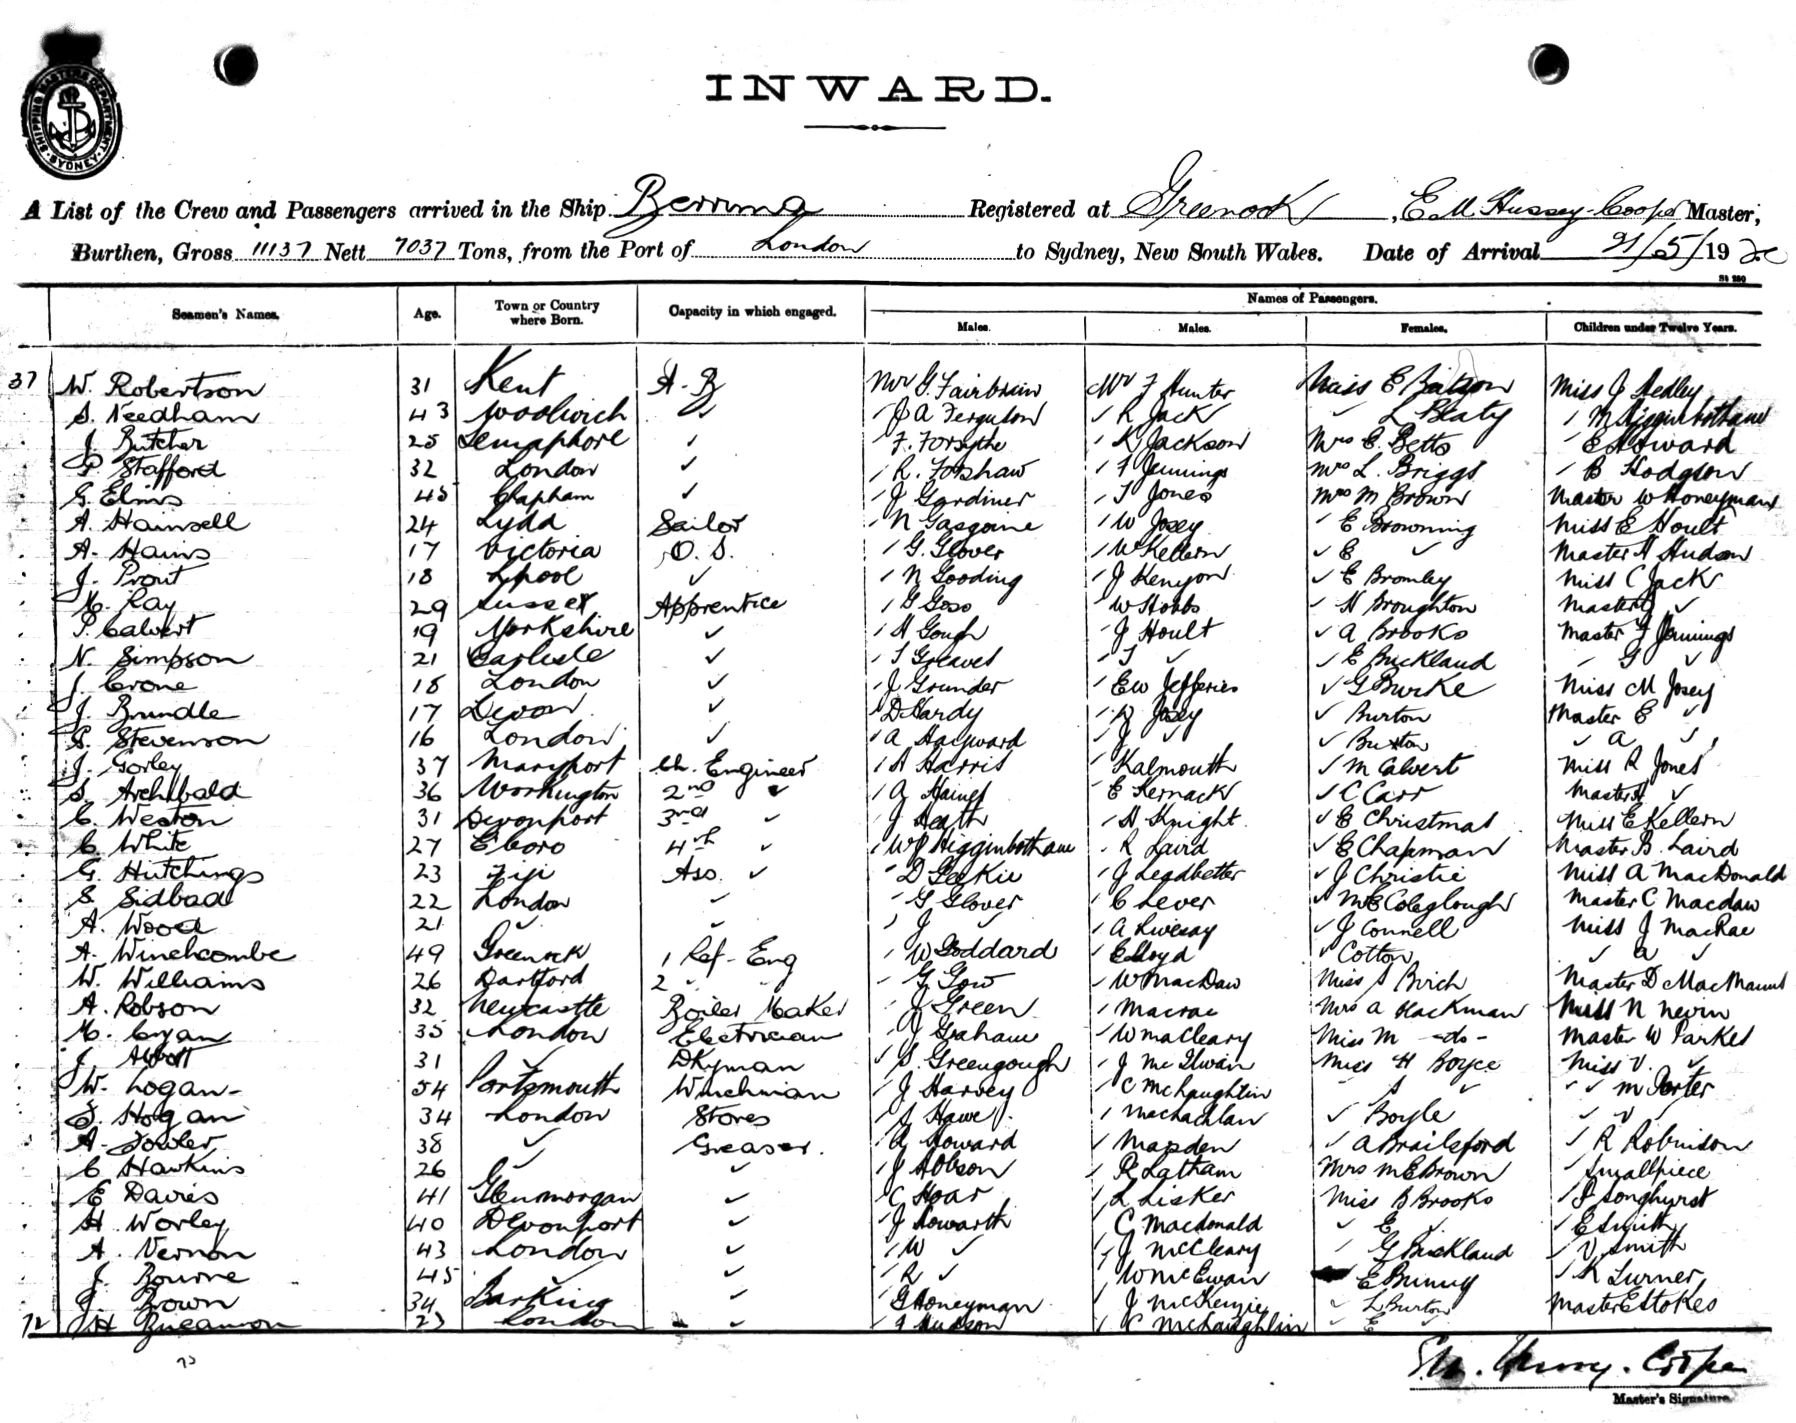 SHIPPING MASTERS DEPARTMENT · SYDNEY ·
INWARD.
A List of the Crew and Passengers arrived in the Ship Berrima Registered at Greenock, E M Hussey-Cooper Master,
Burthen, Gross 11137 Nett 7037 Tons, from the Port of London to Sydney, New South Wales. Date of Arrival 21/5/19
Seamen's Names. Age. Town or Country where Born. Capacity in which engaged. Names of Passengers.
Males. Males. Females. Children under Twelve Years.
37 W. Robertson 31 Kent A. B Mr G. Fairbrain Mr F Hunter Miss E Batson Miss J Hedley
S. Needham 43 Woolwich ✓ J A Ferguson ✓ R Jack ✓ L Beaty M Higginbotham
J. Butcher 25 Semaphore F. Forsythe K Jackson Mrs C. Betts E Howard
P. Stafford 32 London ✓ R. Forshaw F Jennings Mrs L. Briggs B Hodgson
G. Elms 45 Clapham ✓ J Gardiner T Jones Mrs M Brown Master W Honeyman
A. Hamsell 24 Lydd Sailor N Gasgoine W Josey E Browning Miss E Hoult
A. Hains 17 Victoria O. S. G. Glover W Kellern ✓ E ✓ Master H Hudson
J. Prout 18 Lpool ✓ N Gooding J Kenyon ✓ E Bromley Miss C Jack
M. Ray 29 Sussex Apprentice G Goss W Hobbs H Broughton Master ✓
P. Calvert 19 Yorkshire ✓ H Gough J Hoult ✓ A Brooks Master F Jennings
N. Simpson 21 Carlisle ✓ T Greaves T ✓ ✓ E Buckland G ✓
J. Crone 18 London ✓ J Grunder E W Jefferies ✓ G Burke Miss M Josey
J. Brindle 17 Devon ✓ D Hardy Josey ✓ Burton Master E ✓
G. Stevenson 16 London ✓ A Hayward J ✓ ✓ Buxton ✓ A ✓
J. Gorley 37 Maryport Ch. Engineer A Harris Kalmouth ✓ M Calvert Miss R Jones
S. Archibald 36 Workington 2nd ✓ A Haines E Kernack ✓ C Carr Master H ✓
C. Weston 31 Devonport 3rd ✓ J Heath H Knight ✓ E Christmas Miss E Kellern
C. White 27 Eboro 4th ✓ W P Higginbotham R Laird ✓ E Chapman Master B. Laird
G. Hutchings 23 Fiji Ass. ✓ D Geekie J Leadbetter ✓ J Christie Miss A MacDonald
S. Sidbad 22 London ✓ G Glover C Lever M E Coleglough Master C Macdaw
A. Wood 21 ✓ ✓ J ✓ A Livesay ✓ J Connell Miss J MacRae
A. Winchcombe 49 Greenock 1 Ref-Eng W Goddard E Lloyd ✓ Cotton ✓ A ✓
W. Williams 26 Dartford 2 " " G Gow W MacDaw Miss S Birch Master D MacManus
A. Robson 32 Newcastle Boiler Maker J Green Macrae Mrs A Blackman Miss N Nevin
M. Cryan 35 London Electrician J Graham W MaCleary Miss M -do- Master W Parkes
J. Abbott 31 ✓ DKyman S. Greengough J McIlwain Miss H Boyce Miss V. ✓
W. Logan 54 Portsmouth Winchman J Harvey C McLaughlin S ✓ ✓ M Porter
Hogan 34 London Stores J Hawe Machachlan ✓ Boyle ✓ V ✓
A. Fowler 38 ✓ Greaser. R Howard Mapden ✓ A Brailsford ✓ R Robinson
C Hawkins 26 ✓ ✓ J Hobson R Latham Mrs M E Brown Smallpiece
E Davies 41 Glenmorgan ✓ C Hoar L Lisker Miss B Brooks P Songhurst
H. Worley 40 Devonport ✓ J Howarth G Macdonald ✓ E ✓ E Smith
A. Vernon 43 London ✓ W ✓ J McCleary G Buckland V Smith
J. Bourne 45 ✓ ✓ R ✓ W McEwan E Bunny K Turner
J. Brown 34 Barking ✓ G Honeyman J McKenzie ✓ L Burton Master E Stokes
72 H 23 London ✓ Hudson C McLaughlin ✓ E ✓
Master's Signature.